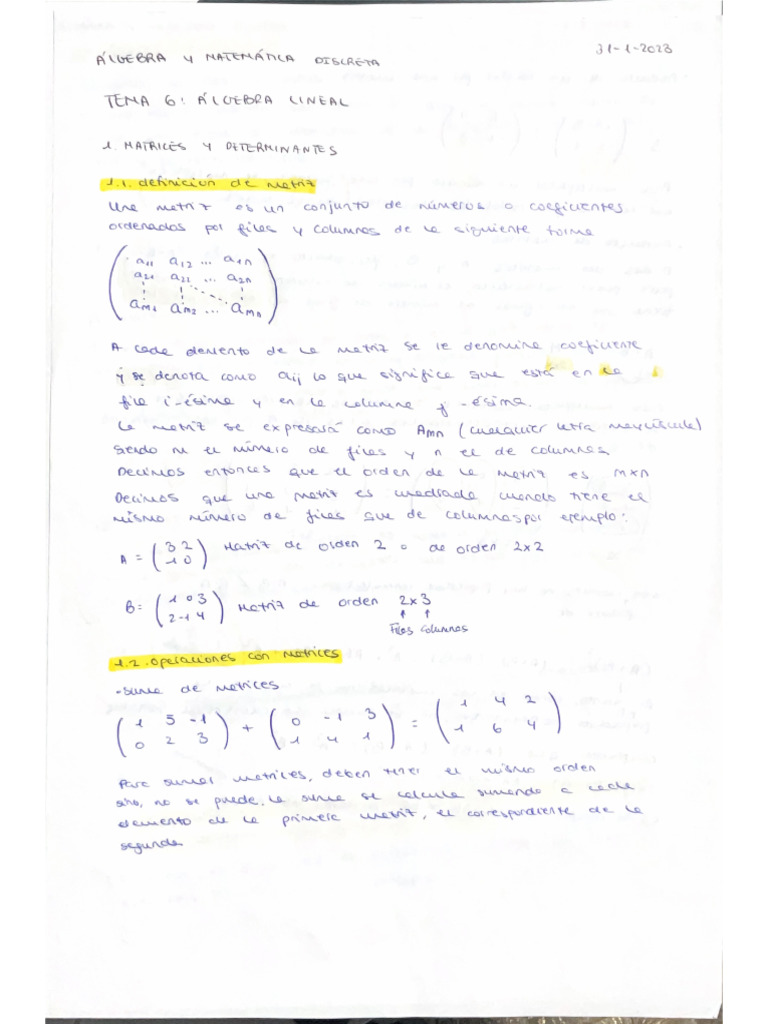 31-1-2023
ÁLGEBRA Y MATEMÁTICA DISCRETA
TEMA 6: ÁLGEBRA LINEAL
1. MATRICES Y DETERMINANTES
1.1. definición de matriz
Una matriz es un conjunto de números o coeficientes
ordenados por filas y columnas de la siguiente forma
a11 a12 ... a1n
a21 a21 ... a2n
am1 am2 ... amn
A cada elemento de la matriz se le denomina coeficiente
y se denota como aij lo que significa que está en la
fila i-ésima y en la columna j-ésima.
La matriz se expresará como Amn (cualquier letra mayúscula)
siendo m el número de filas y n el de columnas
Decimos entonces que el orden de la matriz es m×n
Decimos que una matriz es cuadrada cuando tiene el
mismo número de filas que de columnas por ejemplo:
A = (3 2
1 0) Matriz de orden 2 o de orden 2x2
B = (1 0 3
2 -1 4) Matriz de orden 2x3
Filas Columnas
1.2. Operaciones con matrices
- Suma de matrices
(1 5 -1
0 2 3) + (0 -1 3
1 4 1) = (1 4 2
1 6 4)
Para sumar matrices, deben tener el mismo orden
sino, no se puede, la suma se calcula sumando a cada
elemento de la primera matriz, el correspondiente de la
segunda